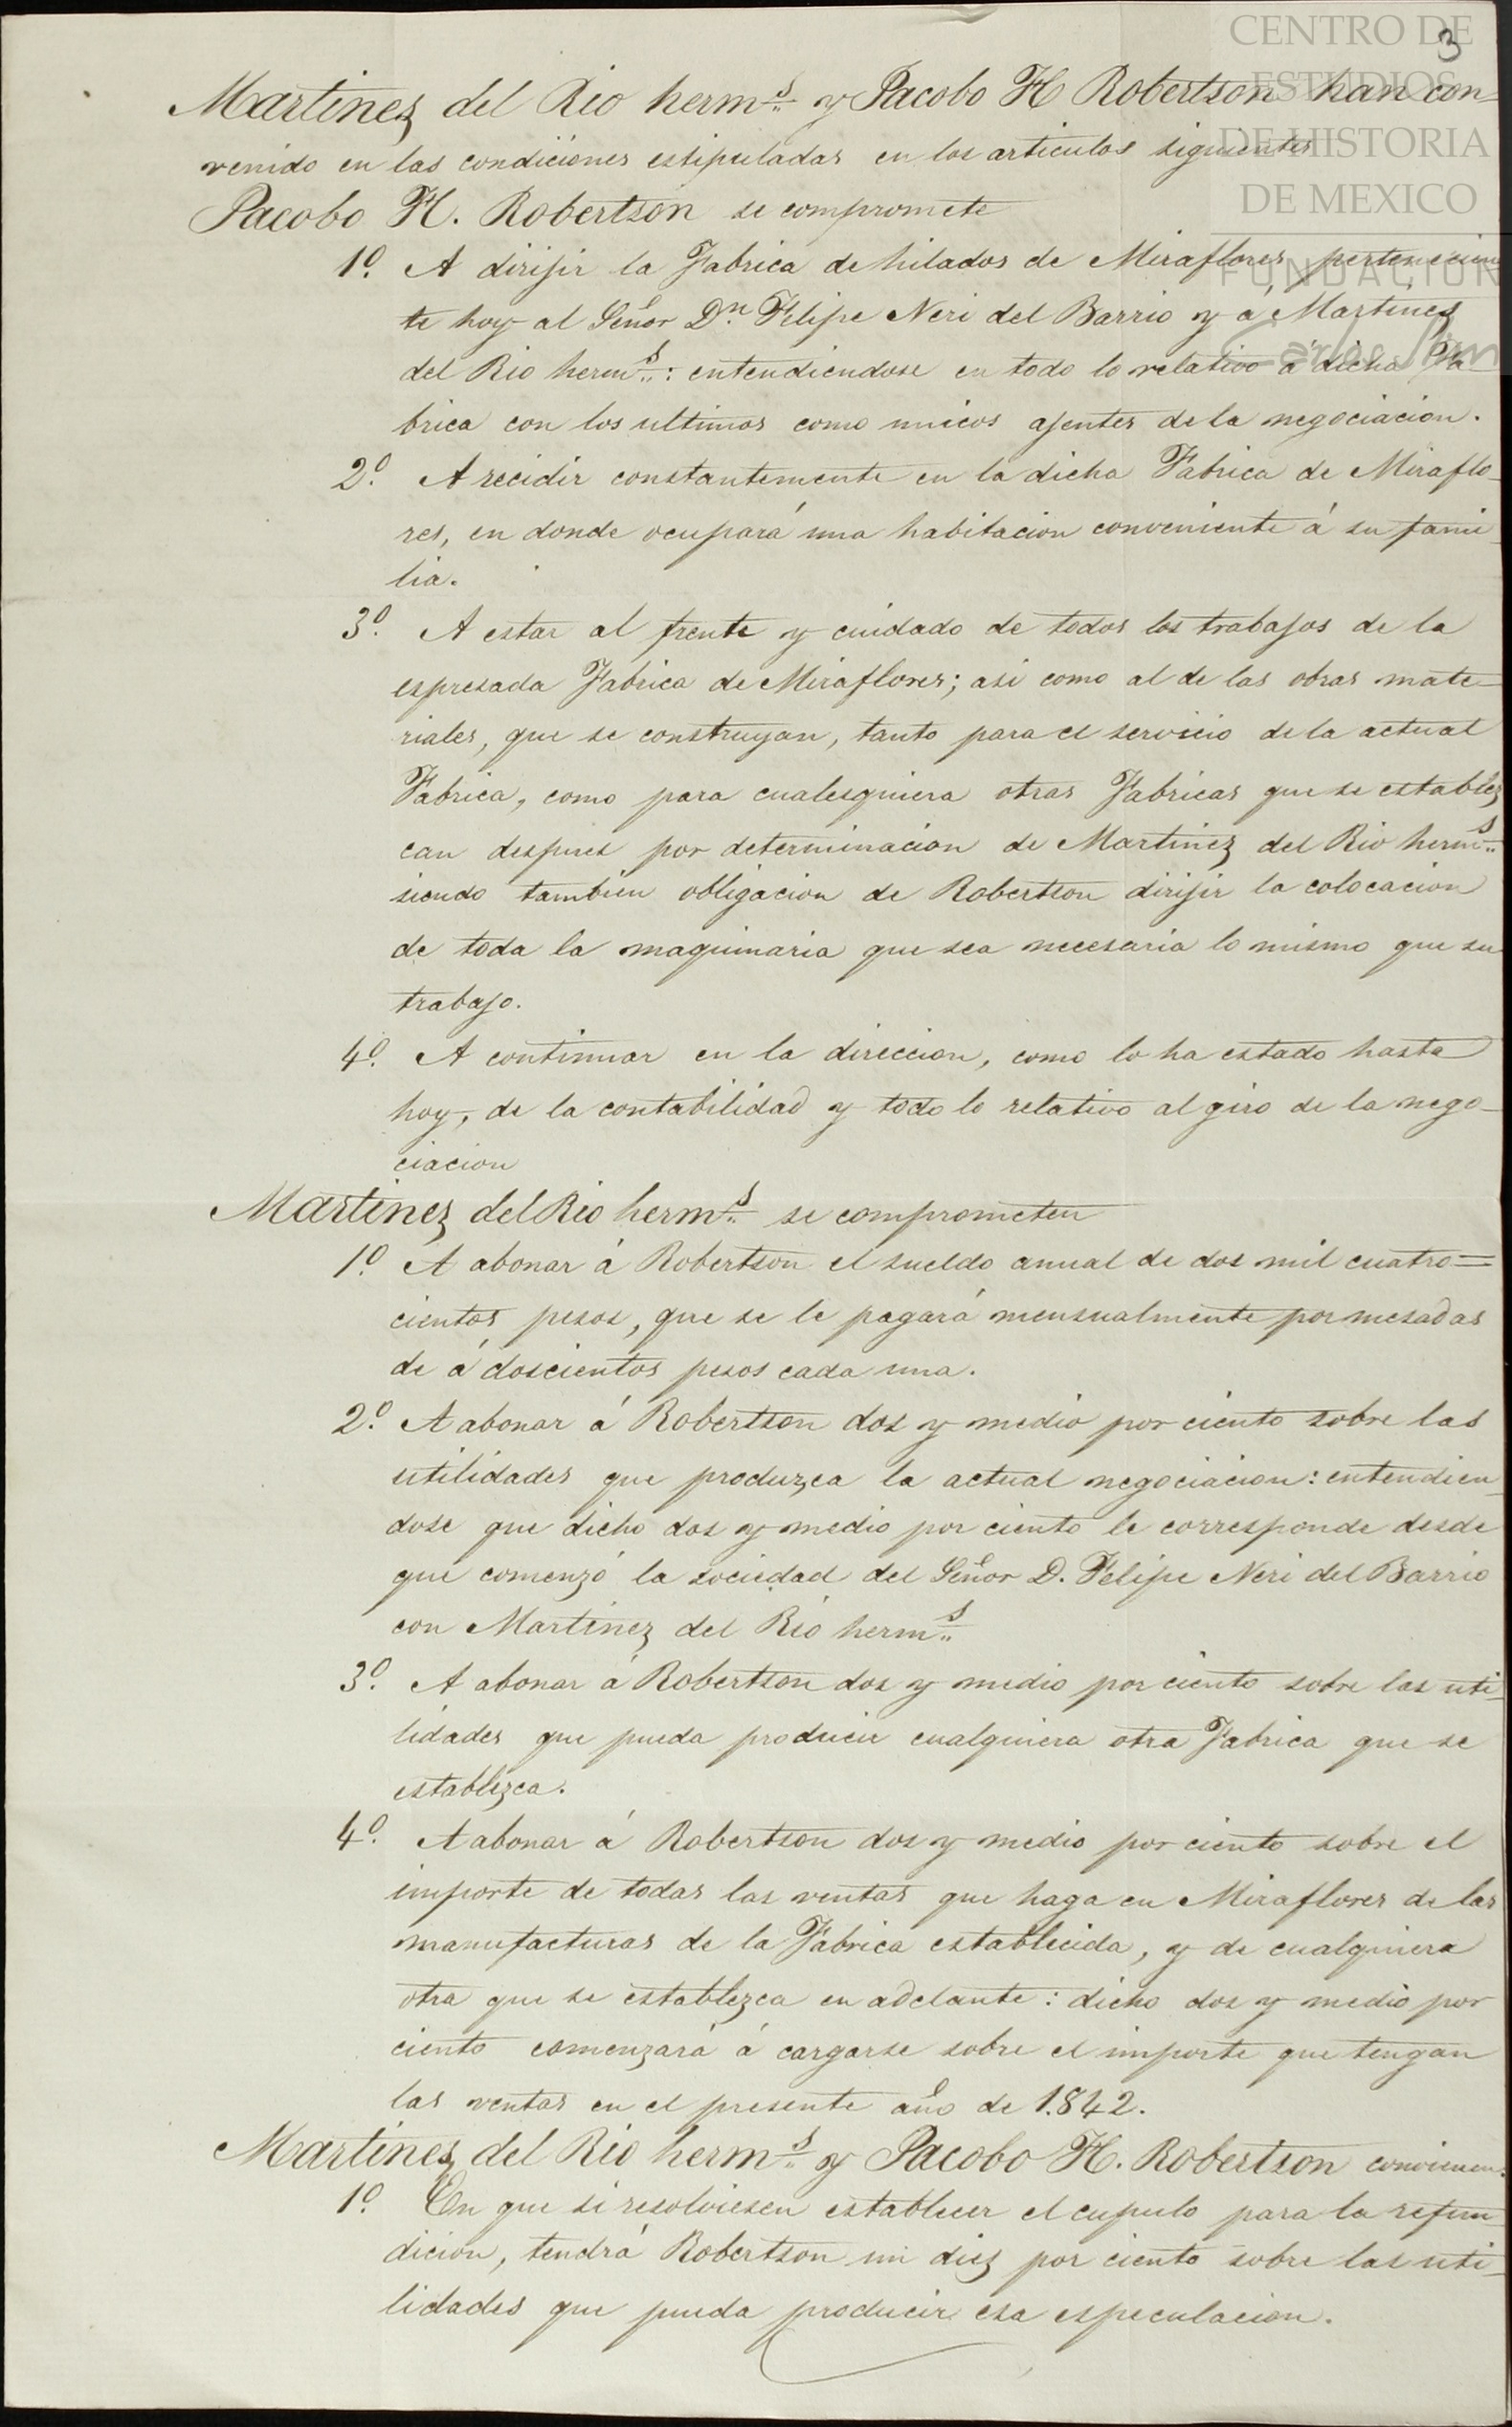 3
CENTRO DE
ESTUDIOS
DE HISTORIA
DE MEXICO
FUNDACION
Carlos Slim
Martinez del Rio herm.s y Jacobo H Robertson han con-
venido en las condiciones estipuladas en los articulos siguientes
Jacobo H. Robertson se compromete
1º. A dirijir la Fabrica de hilados de Miraflores, pertenecien
te hoy al Señor Dn. Felipe Neri del Barrio y á Martinez
del Rio herm.s: entendiendose en todo lo relativo á dicha Fa
brica con los ultimos como unicos ajentes de la negociacion.
2º. A recidir constantemente en la dicha Fabrica de Miraflo-
res, en donde ocupará una habitacion conveniente á su fami-
lia.
3º. A estar al frente y cuidado de todos los trabajos de la
espresada Fabrica de Miraflores; asi como al de las obras mate-
riales, que se construyan, tanto para el servicio de la actual
Fabrica, como para cualesquiera otras Fabricas que se establez
can despues por determinacion de Martinez del Rio herm.s
siendo tambien obligacion de Robertson dirijir la colocacion
de toda la maquinaria que sea necesaria lo mismo que su
trabajo.
4º. A continuar en la direccion, como lo ha estado hasta
hoy, de la contabilidad y todo lo relativo al giro de la nego-
ciacion
Martinez del Rio herm.s se comprometen
1º. A abonar á Robertson el sueldo anual de dos mil cuatro=
cientos pesos, que se le pagará mensualmente por mesadas
de á doscientos pesos cada una.
2º. A abonar á Robertson dos y medio por ciento sobre las
utilidades que produzca la actual negociacion: entendien-
dose que dicho dos y medio por ciento le corresponde desde
que comenzó la sociedad del Señor D. Felipe Neri del Barrio
con Martinez del Rio herm.s
3º. A abonar á Robertson dos y medio por ciento sobre las uti-
lidades que pueda producir cualquiera otra Fabrica que se
establezca.
4º. A abonar á Robertson dos y medio por ciento sobre el
importe de todas las ventas que haga en Miraflores de las
manufacturas de la Fabrica establecida, y de cualquiera
otra que se establezca en adelante: dicho dos y medio por
ciento comenzará á cargarse sobre el importe que tengan
las ventas en el presente año de 1.842.
Martinez del Rio herm.s y Jacobo H. Robertson convienen
1º. En que si resolviesen establecer el cupulo para la refun-
dicion, tendrá Robertson un diez por ciento sobre las uti-
lidades que pueda producir esa especulacion.